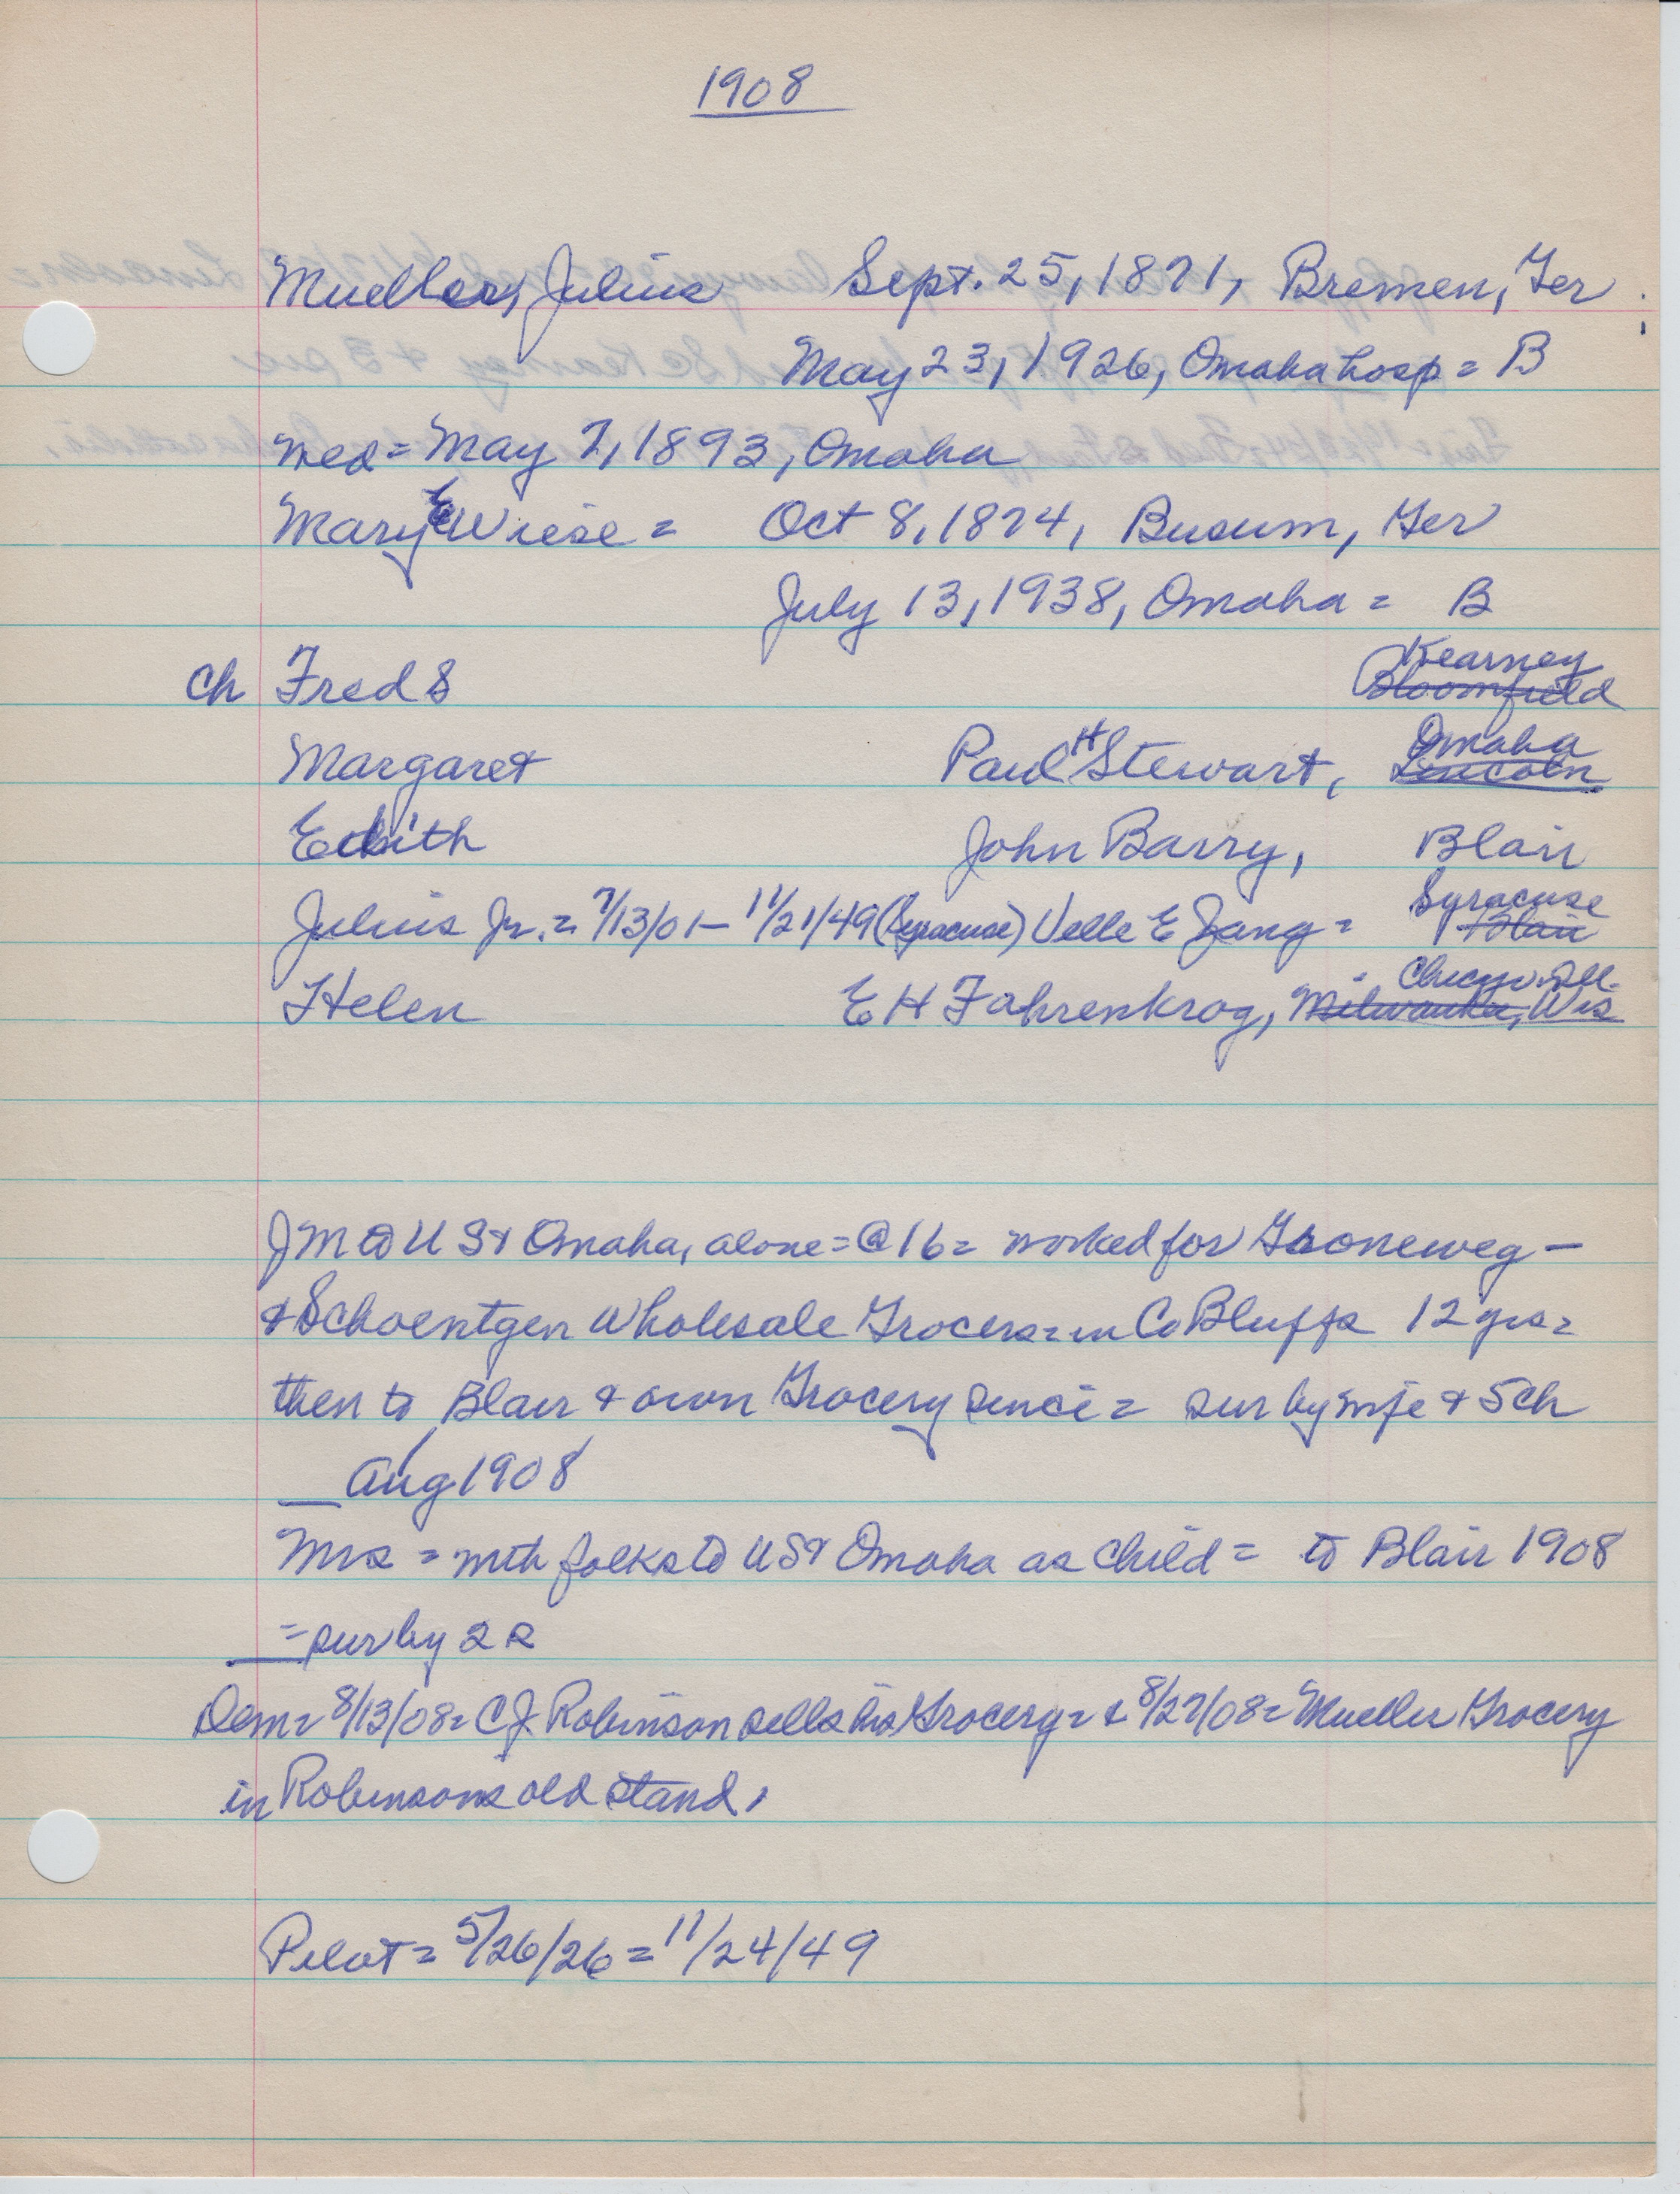 1908
Mueller, Julius Sept. 25, 1871, Bremen, Ger
May 23, 1926, Omaha hosp = B
wed = May 7, 1893, Omaha
Mary E Wiese = Oct 8, 1874, Busum, Ger
July 13, 1938, Omaha = B
Kearney
ch Fred S Bloomfield
Omaha
Margaret Paul H Stewart, Lincoln
Edith John Barry, Blair
Syracuse
Julius Jr. = 7/13/01 - 11/21/49 (Syracuse) Velle E Jang = Blair
Chicago. Ill.
Helen E H Fahrenkrog, Milwaukee, Wis
JM to US & Omaha, alone = @ 16 = worked for Groneweg -
& Schoentgen Wholesale Grocers = in Co Bluffs 12 yrs =
then to Blair & own Grocery since = sur by wife & 5 ch
Aug 1908
Mrs = with folks to US & Omaha as child = to Blair 1908
= sur by 2 s
Dem = 8/13/08 = C J Robinson sells his Grocery = & 8/27/08 = Mueller Grocery
in Robinsons old stand,
Pilot = 5/26/26 = 11/24/49